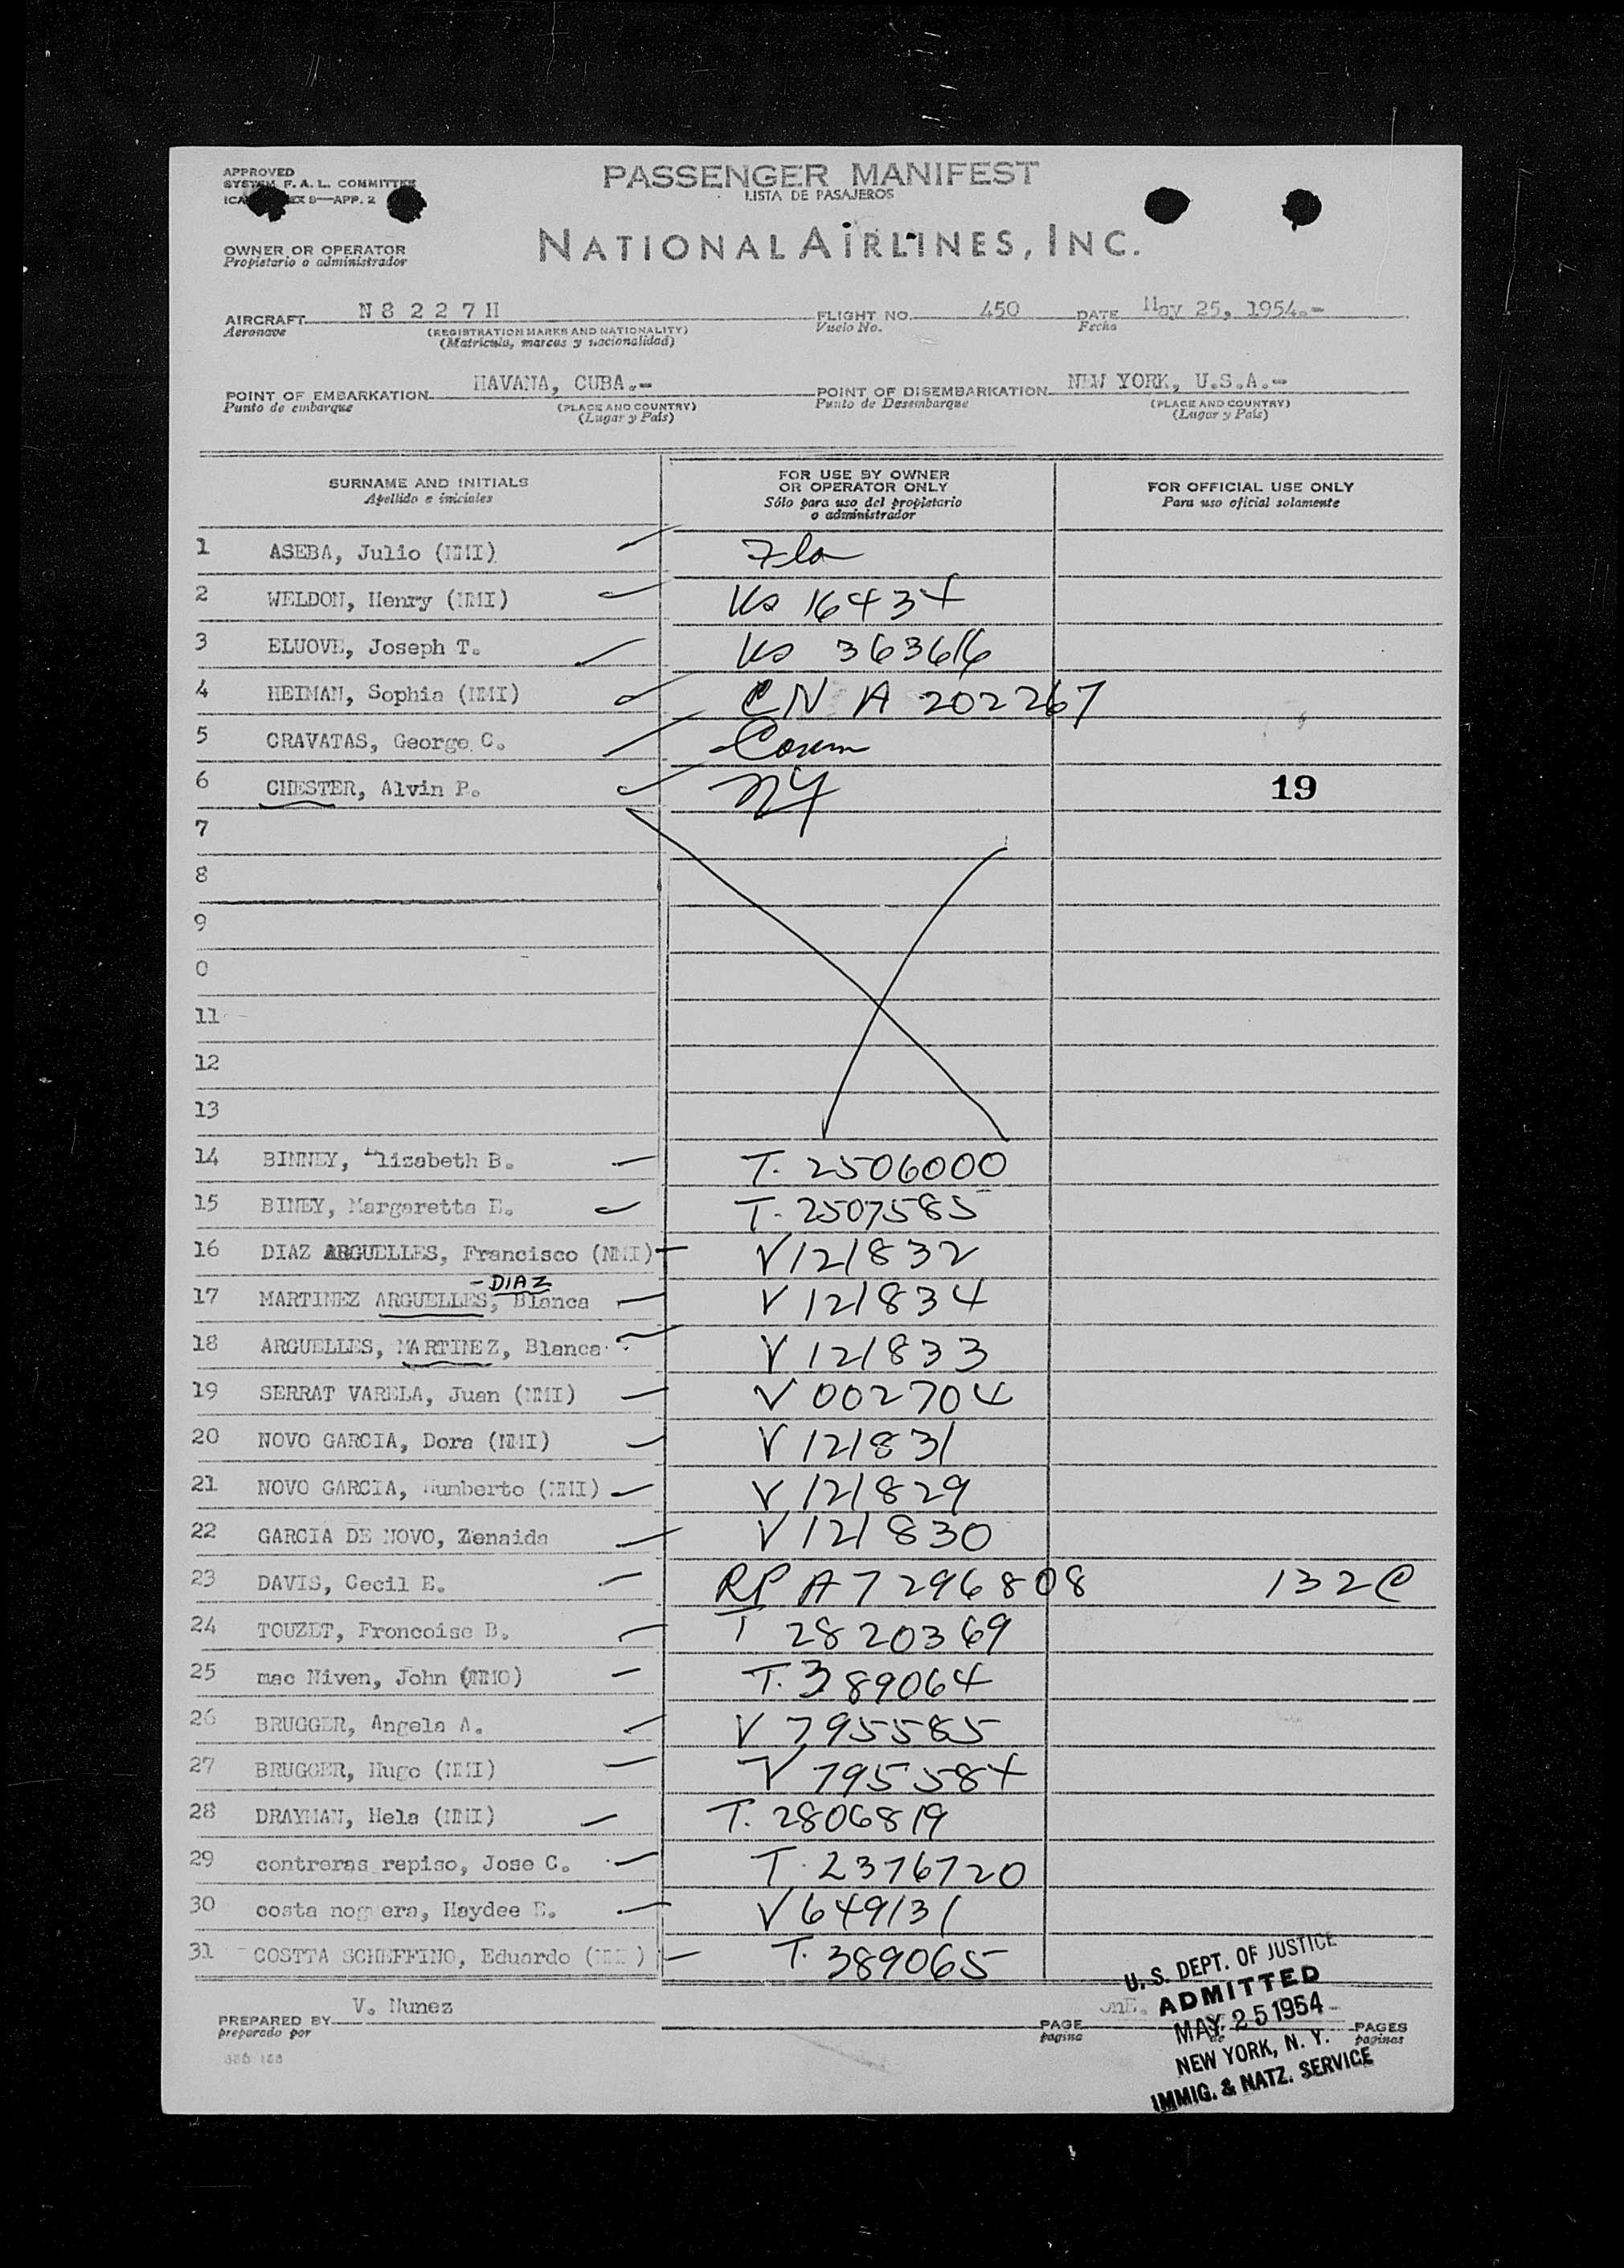 APPROVED
SYSTEM F. A. L. COMMITTEE
9—APP. 2
PASSENGER MANIFEST
LISTA DE PASAJEROS
OWNER OR OPERATOR
Propietario o administrador
NATIONAL AIRLINES, INC.
AIRCRAFT N 8 2 2 7 H FLIGHT NO. 450 DATE May 25, 1954.-
Aeronave (REGISTRATION MARKS AND NATIONALITY) Vuelo No. Fecha
(Matricula, marcas y nacionalidad)
POINT OF EMBARKATION HAVANA, CUBA.- POINT OF DISEMBARKATION NEW YORK, U.S.A.-
Punto de embarque (PLACE AND COUNTRY) Punto de Desembarque (PLACE AND COUNTRY)
(Lugar y País) (Lugar y País)
SURNAME AND INITIALS
Apellido e iniciales
FOR USE BY OWNER
OR OPERATOR ONLY
Sólo para uso del propietario
o administrador
FOR OFFICIAL USE ONLY
Para uso oficial solamente
1 ASEBA, Julio (NMI) Fla
2 WELDON, Henry (NMI) US 16434
3 ELUOVE, Joseph T. US 363616
4 HEIMAN, Sophia (NMI) CN A 202267
5 CRAVATAS, George C. Conn
6 CHESTER, Alvin P. NY 19
7
8
9
0
11
12
13
14 BINNEY, Elizabeth B. T. 2506000
15 BINEY, Margaretta E. T. 2507585
16 DIAZ ARGUELLES, Francisco (NMI) V 121832
-DIAZ
17 MARTINEZ ARGUELLES, Blanca V 121834
18 ARGUELLES, MARTINEZ, Blanca V 121833
19 SERRAT VARELA, Juan (NMI) V 002704
20 NOVO GARCIA, Dora (NMI) V 121831
21 NOVO GARCIA, Humberto (NMI) V 121829
22 GARCIA DE NOVO, Zenaida V 121830
23 DAVIS, Cecil E. RP A7296808 132@
24 TOUZET, Francoise B. T 2820369
25 mac Niven, John (NMO) T. 389064
26 BRUGGER, Angela A. V 795585
27 BRUGGER, Hugo (NMI) V 795584
28 DRAYMAN, Hela (NMI) T. 2806819
29 contreras repiso, Jose C. T. 2376720
30 costa noguera, Haydee E. V 649131
31 COSTTA SCHEFFINO, Eduardo (NMI) T. 389065
PREPARED BY V. Nunez PAGE OnE. PAGES
preparado por pagina de paginas
U. S. DEPT. OF JUSTICE
ADMITTED
MAY 25 1954
NEW YORK, N. Y.
IMMIG. & NATZ. SERVICE